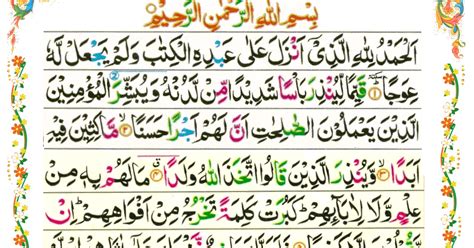 بِسْمِ اللهِ الرَّحْمٰنِ الرَّحِيْمِ
اَلْحَمْدُ لِلّٰهِ الَّذِيْۤ اَنْزَلَ عَلٰى عَبْدِهِ الْكِتٰبَ وَلَمْ يَجْعَلْ لَّهٗ
عِوَجًا ۜ ﴿۱﴾ قَيِّمًا لِّيُنْذِرَ بَاْسًا شَدِيْدًا مِّنْ لَّدُنْهُ وَيُبَشِّرَ الْمُؤْمِنِيْنَ
الَّذِيْنَ يَعْمَلُوْنَ الصّٰلِحٰتِ اَنَّ لَهُمْ اَجْرًا حَسَنًا ﴿۲﴾ مَّاكِثِيْنَ فِيْهِ
اَبَدًا ﴿۳﴾ وَّيُنْذِرَ الَّذِيْنَ قَالُوا اتَّخَذَ اللهُ وَلَدًا ﴿۴﴾ مَا لَهُمْ بِهٖ مِنْ
عِلْمٍ وَّلَا لِاٰبَآئِهِمْ ؕ كَبُرَتْ كَلِمَةً تَخْرُجُ مِنْ اَفْوَاهِهِمْ ؕ اِنْ